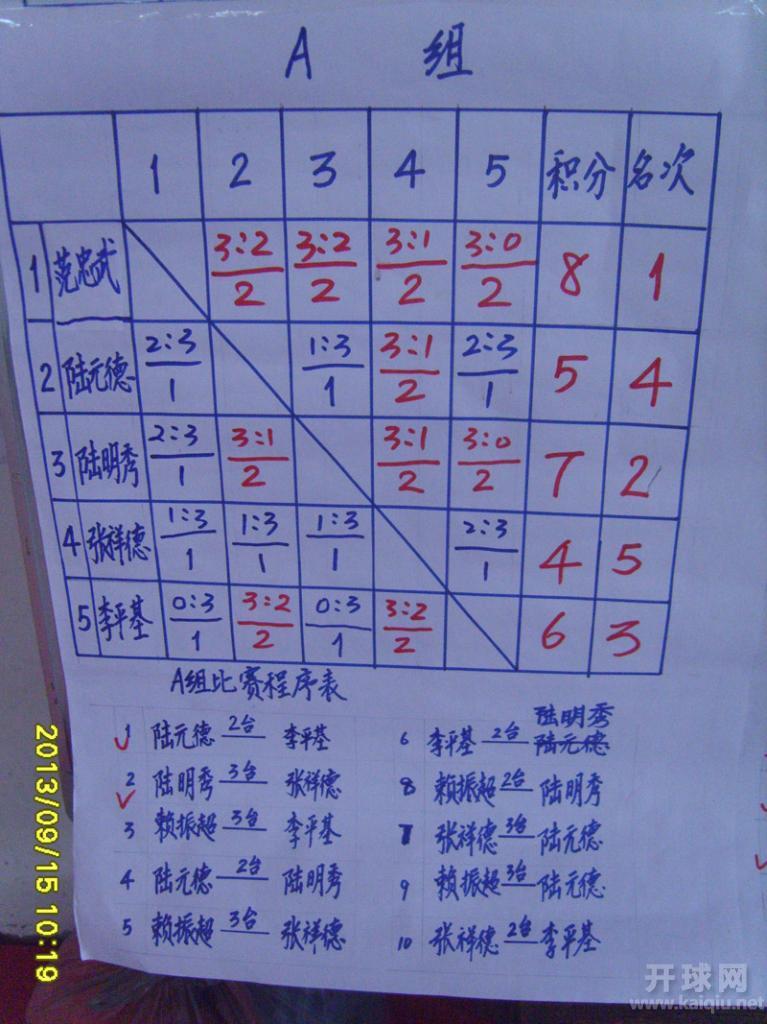 A 组
1 2 3 4 5 积分 名次
1 范忠武 3:2/2 3:2/2 3:1/2 3:0/2 8 1
2 陆元德 2:3/1 1:3/1 3:1/2 2:3/1 5 4
3 陆明秀 2:3/1 3:1/2 3:1/2 3:0/2 7 2
4 张祥德 1:3/1 1:3/1 1:3/1 2:3/1 4 5
5 李平基 0:3/1 3:2/2 0:3/1 3:2/2 6 3
A组比赛程序表
1 陆元德 2台 李平基
2 陆明秀 3台 张祥德
3 赖振超 3台 李平基
4 陆元德 2台 陆明秀
5 赖振超 3台 张祥德
陆明秀
6 李平基 2台 陆元德
8 赖振超 2台 陆明秀
7 张祥德 3台 陆元德
9 赖振超 3台 陆元德
10 张祥德 2台 李平基
2013/09/15 10:19
开球网
www.kaiqiu.net